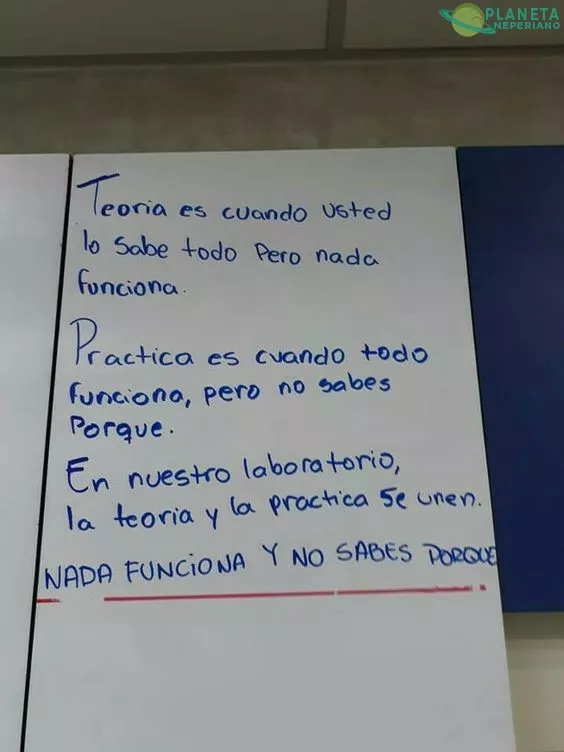 PLANETA
NEPERIANO
Teoria es cuando usted
lo sabe todo Pero nada
funciona.
Practica es cuando todo
funciona, pero no sabes
Porque.
En nuestro laboratorio,
la teoria y la practica se unen.
NADA FUNCIONA Y NO SABES PORQUE